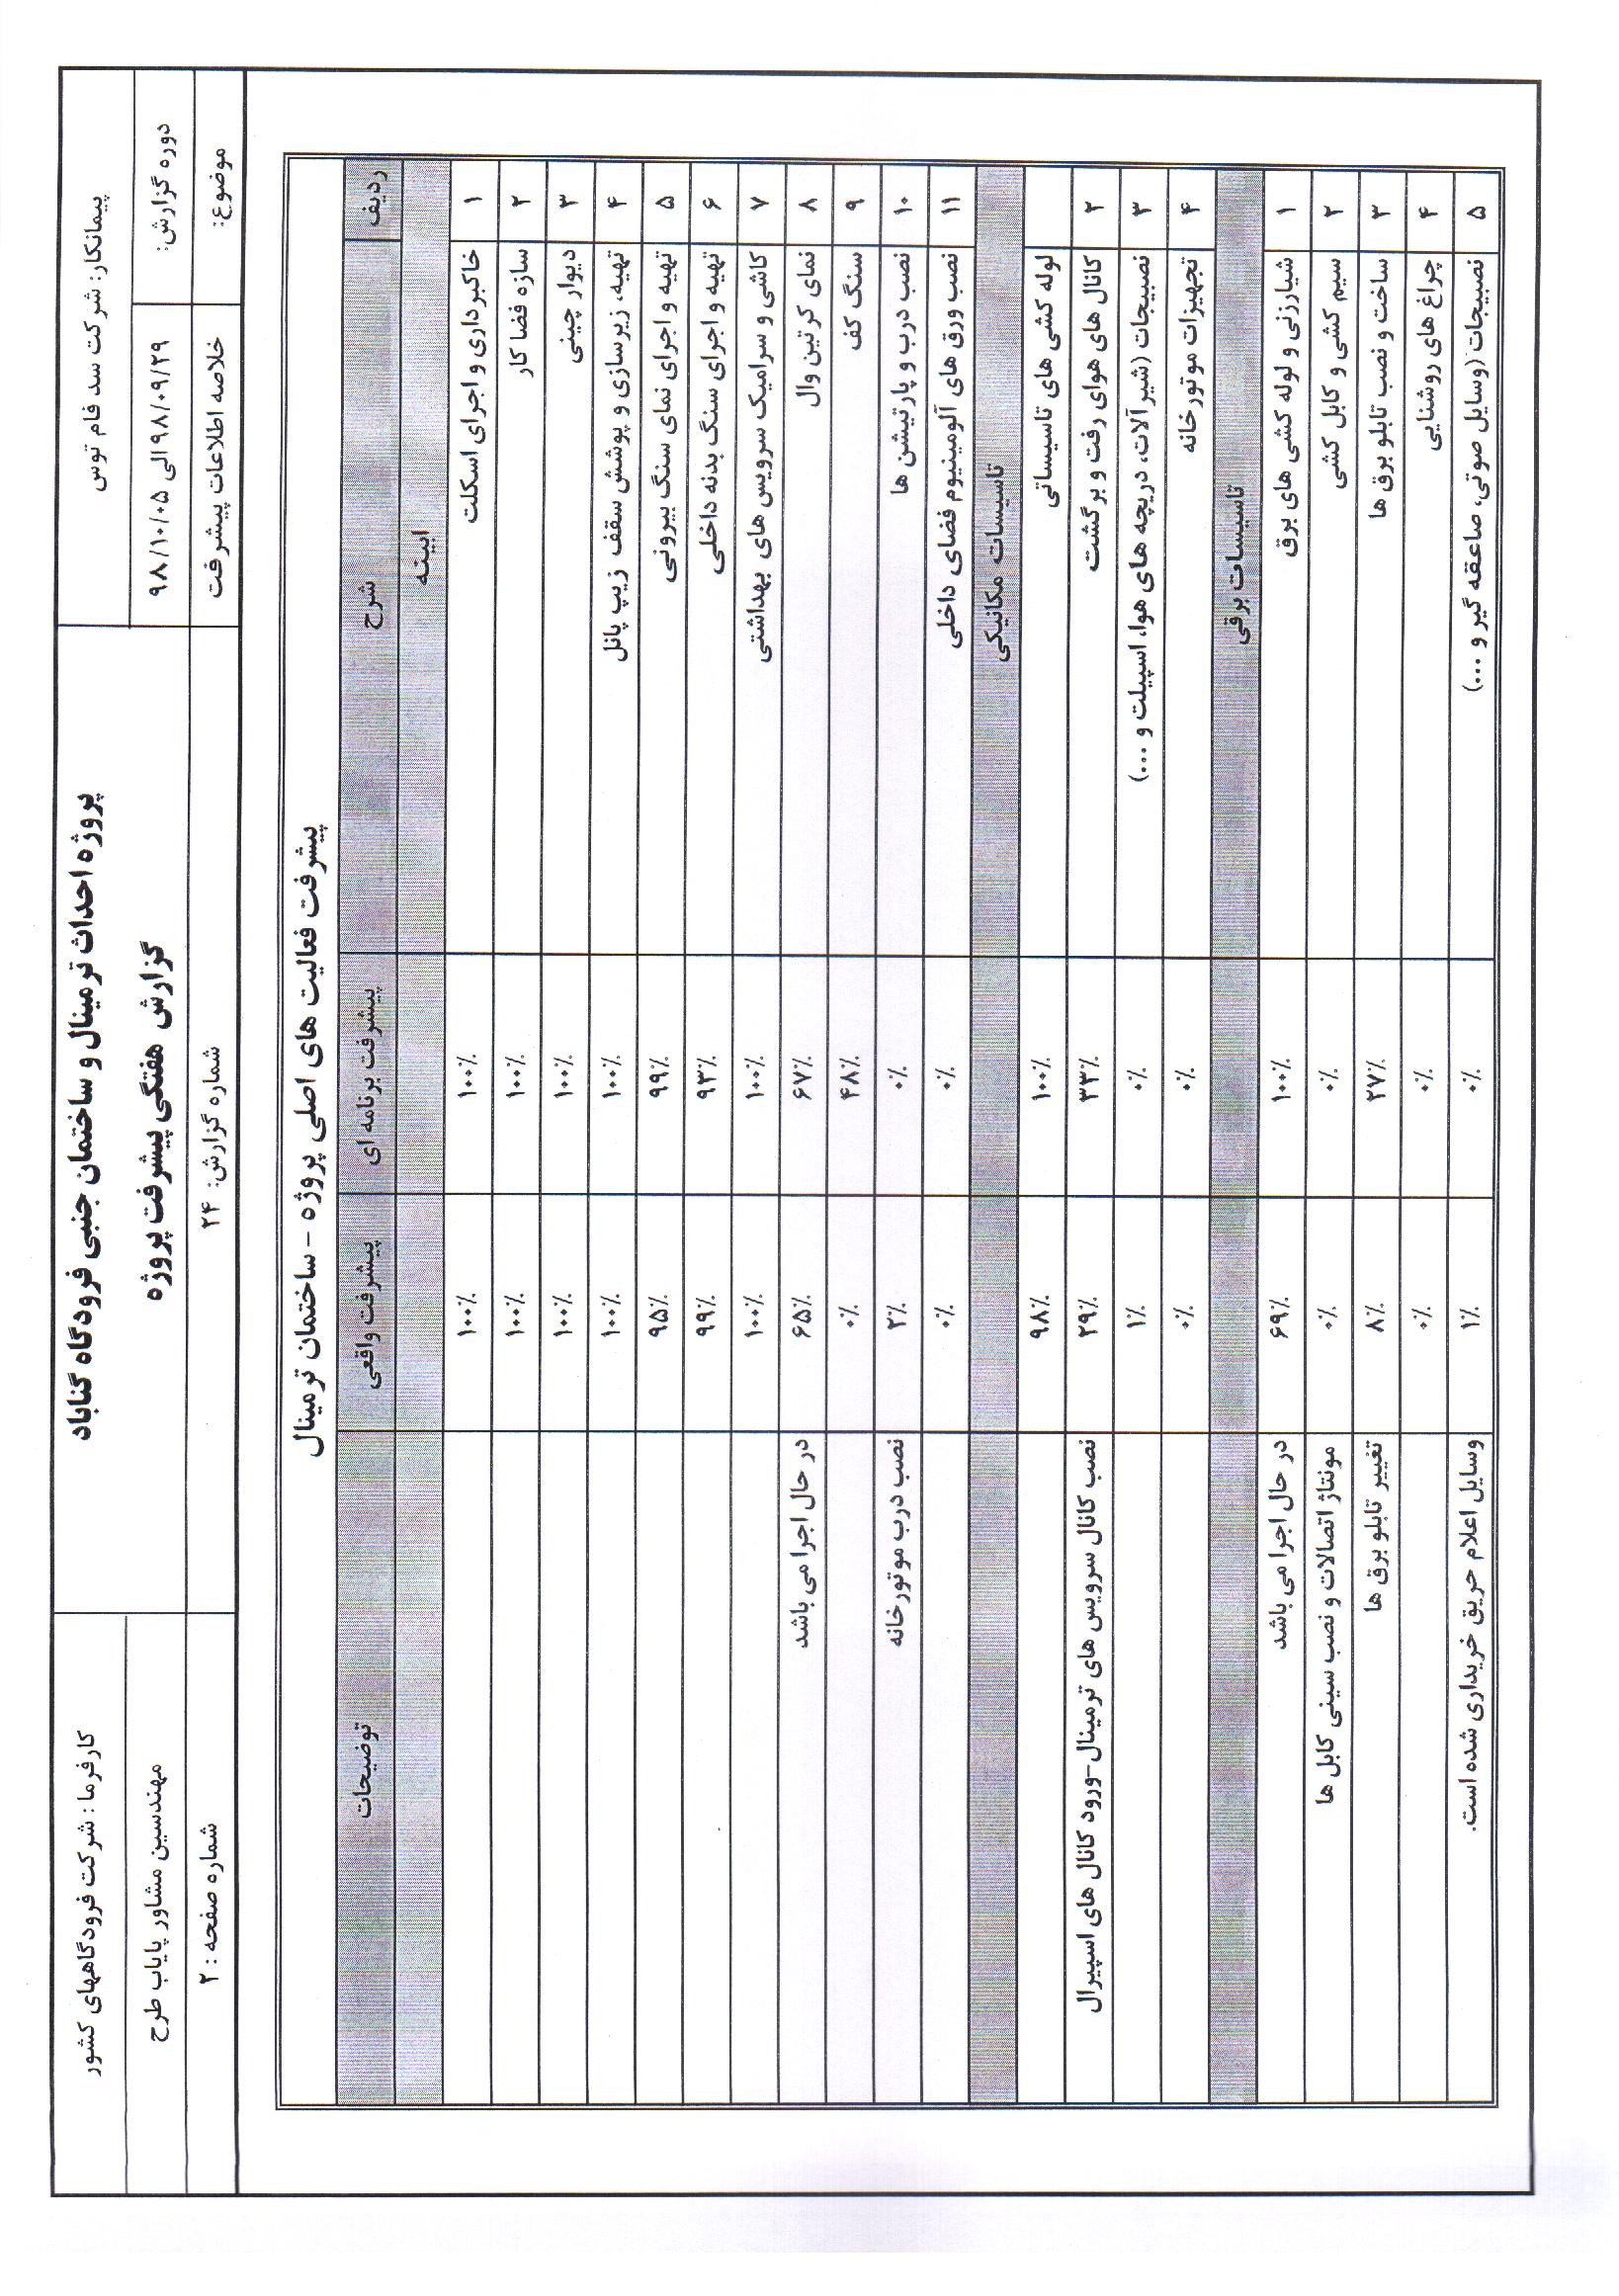 پیمانکار: شرکت سد فام توس
پروژه احداث ترمینال و ساختمان جنبی فرودگاه گناباد
کارفرما : شرکت فرودگاههای کشور
دوره گزارش: ۹۸/۰۹/۲۹ الی ۹۸/۱۰/۰۵
گزارش هفتگی پیشرفت پروژه
مهندسین مشاور پایاب طرح
موضوع: خلاصه اطلاعات پیشرفت
شماره گزارش: ۲۴
شماره صفحه : ۲
پیشرفت فعالیت های اصلی پروژه - ساختمان ترمینال
ردیف شرح پیشرفت برنامه ای پیشرفت واقعی توضیحات
ابنیه
۱ خاکبرداری و اجرای اسکلت ۱۰۰٪ ۱۰۰٪
۲ سازه فضا کار ۱۰۰٪ ۱۰۰٪
۳ دیوار چینی ۱۰۰٪ ۱۰۰٪
۴ تهیه، زیرسازی و پوشش سقف زیپ پانل ۱۰۰٪ ۱۰۰٪
۵ تهیه و اجرای نمای سنگ بیرونی ۹۹٪ ۹۵٪
۶ تهیه و اجرای سنگ بدنه داخلی ۹۳٪ ۹۹٪
۷ کاشی و سرامیک سرویس های بهداشتی ۱۰۰٪ ۱۰۰٪
۸ نمای کرتین وال ۶۷٪ ۶۵٪ در حال اجرا می باشد
۹ سنگ کف ۴۸٪ ۰٪
۱۰ نصب درب و پارتیشن ها ۰٪ ۲٪ نصب درب موتورخانه
۱۱ نصب ورق های آلومینیوم فضای داخلی ۰٪ ۰٪
تاسیسات مکانیکی
۱ لوله کشی های تاسیساتی ۱۰۰٪ ۹۸٪
۲ کانال های هوای رفت و برگشت ۳۳٪ ۲۹٪ نصب کانال سرویس های ترمینال -ورود کانال های اسپیرال
۳ نصبیجات (شیر آلات، دریچه های هوا، اسپیلت و ...) ۰٪ ۱٪
۴ تجهیزات موتورخانه ۰٪ ۰٪
تاسیسات برقی
۱ شیارزنی و لوله کشی های برق ۱۰۰٪ ۶۹٪ در حال اجرا می باشد
۲ سیم کشی و کابل کشی ۰٪ ۰٪ مونتاژ اتصالات و نصب سینی کابل ها
۳ ساخت و نصب تابلو برق ها ۲۷٪ ۸٪ تغییر تابلو برق ها
۴ چراغ های روشنایی ۰٪ ۰٪
۵ نصبیجات (وسایل صوتی، صاعقه گیر و ...) ۰٪ ۱٪ وسایل اعلام حریق خریداری شده است.